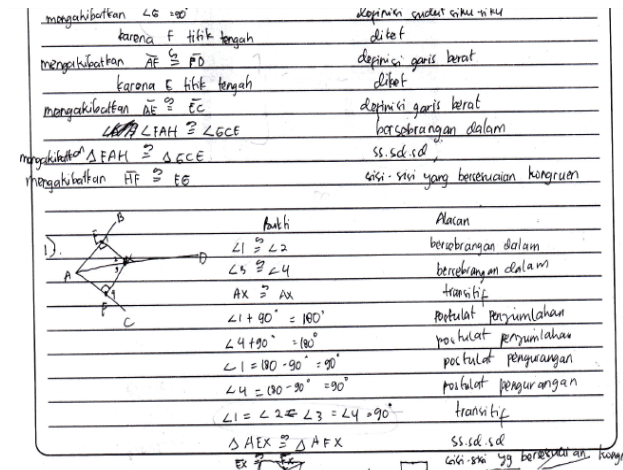 mengakibatkan ∠G = 90° definisi sudut siku-siku
karena F titik tengah diket
mengakibatkan AF ≅ FD definisi garis berat
karena E titik tengah diket
mengakibatkan AE ≅ EC definisi garis berat
∠FAH ≅ ∠GCE bersebrangan dalam
mengakibatkan △FAH ≅ △GCE ss.sd.sd
mengakibatkan HF ≅ EG sisi-sisi yang bersesuaian kongruen
Bukti Alasan
1). ∠1 ≅ ∠2 bersebrangan dalam
∠3 ≅ ∠4 bersebrangan dalam
AX ≅ AX transitif
∠1 + 90° = 180° postulat penjumlahan
∠4 + 90° = 180° postulat penjumlahan
∠1 = 180 - 90° = 90° postulat pengurangan
∠4 = 180 - 90° = 90° postulat pengurangan
∠1 = ∠2 = ∠3 = ∠4 = 90° transitif
△AEX ≅ △AFX ss.sd.sd
EX ≅ FX sisi-sisi yg bersesuaian kong
B
E
X
D
A
F
C
2
3
4